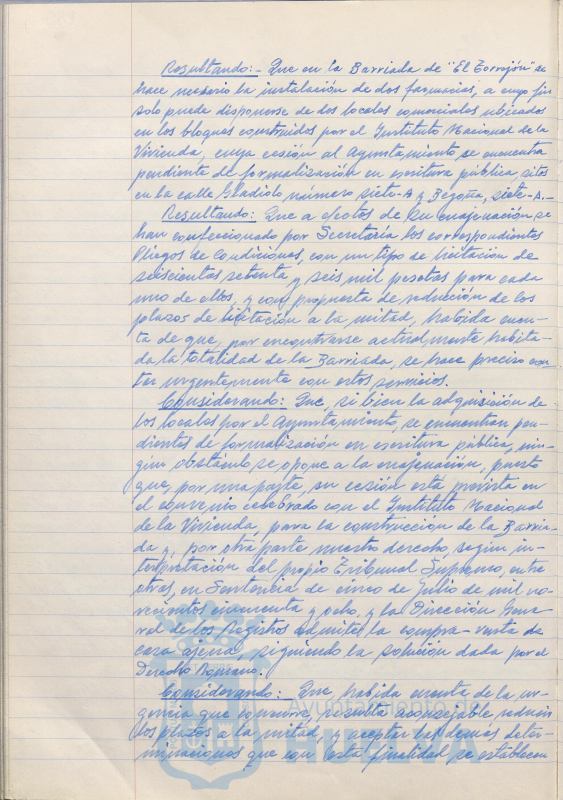 Resultando:- Que en la Barriada de "El Torrejón" se
hace necesario la instalación de dos farmacias, a cuyo fin
solo puede disponerse de dos locales comerciales ubicados
en los bloques construidos por el Instituto Nacional de la
Vivienda, cuya cesión al Ayuntamiento se encuentra
pendiente de formalización en escritura pública, sitos
en la calle Gladiolo número siete-A y Begoña, siete-A.-
Resultando: Que a efectos de su enajenación se
han confeccionado por Secretaría los correspondientes
Pliegos de Condiciones, con un tipo de licitación de
seiscientas setenta y seis mil pesetas para cada
uno de ellos, y con propuesta de reducción de los
plazos de licitación a la mitad, habida cuen-
ta de que, por encontrarse actualmente habita-
da la totalidad de la Barriada, se hace preciso con-
tar urgentemente con estos servicios.
Considerando: Que, si bien la adquisición de
los locales por el Ayuntamiento, se encuentran pen-
dientes de formalización en escritura pública, nin-
gún obstáculo se opone a la enajenación, puesto
que, por una parte, su cesión está prevista en
el convenio celebrado con el Instituto Nacional
de la Vivienda, para la construcción de la Barria-
da y, por otra parte nuestro derecho, según in-
terpretación del propio Tribunal Supremo, entre
otras, en Sentencia de cinco de Julio de mil no-
vecientos cincuenta y ocho, y la Dirección Gene-
ral de los Registros admite la compra-venta de
cosa ajena, siguiendo la solución dada por el
Derecho Romano.
Considerando: Que, habida cuenta de la ur-
gencia que concurre, resulta aconsejable reducir
los plazos a la mitad, y aceptar las demás deter-
minaciones que con esta finalidad se establecen
Ayuntamiento de
HUELVA